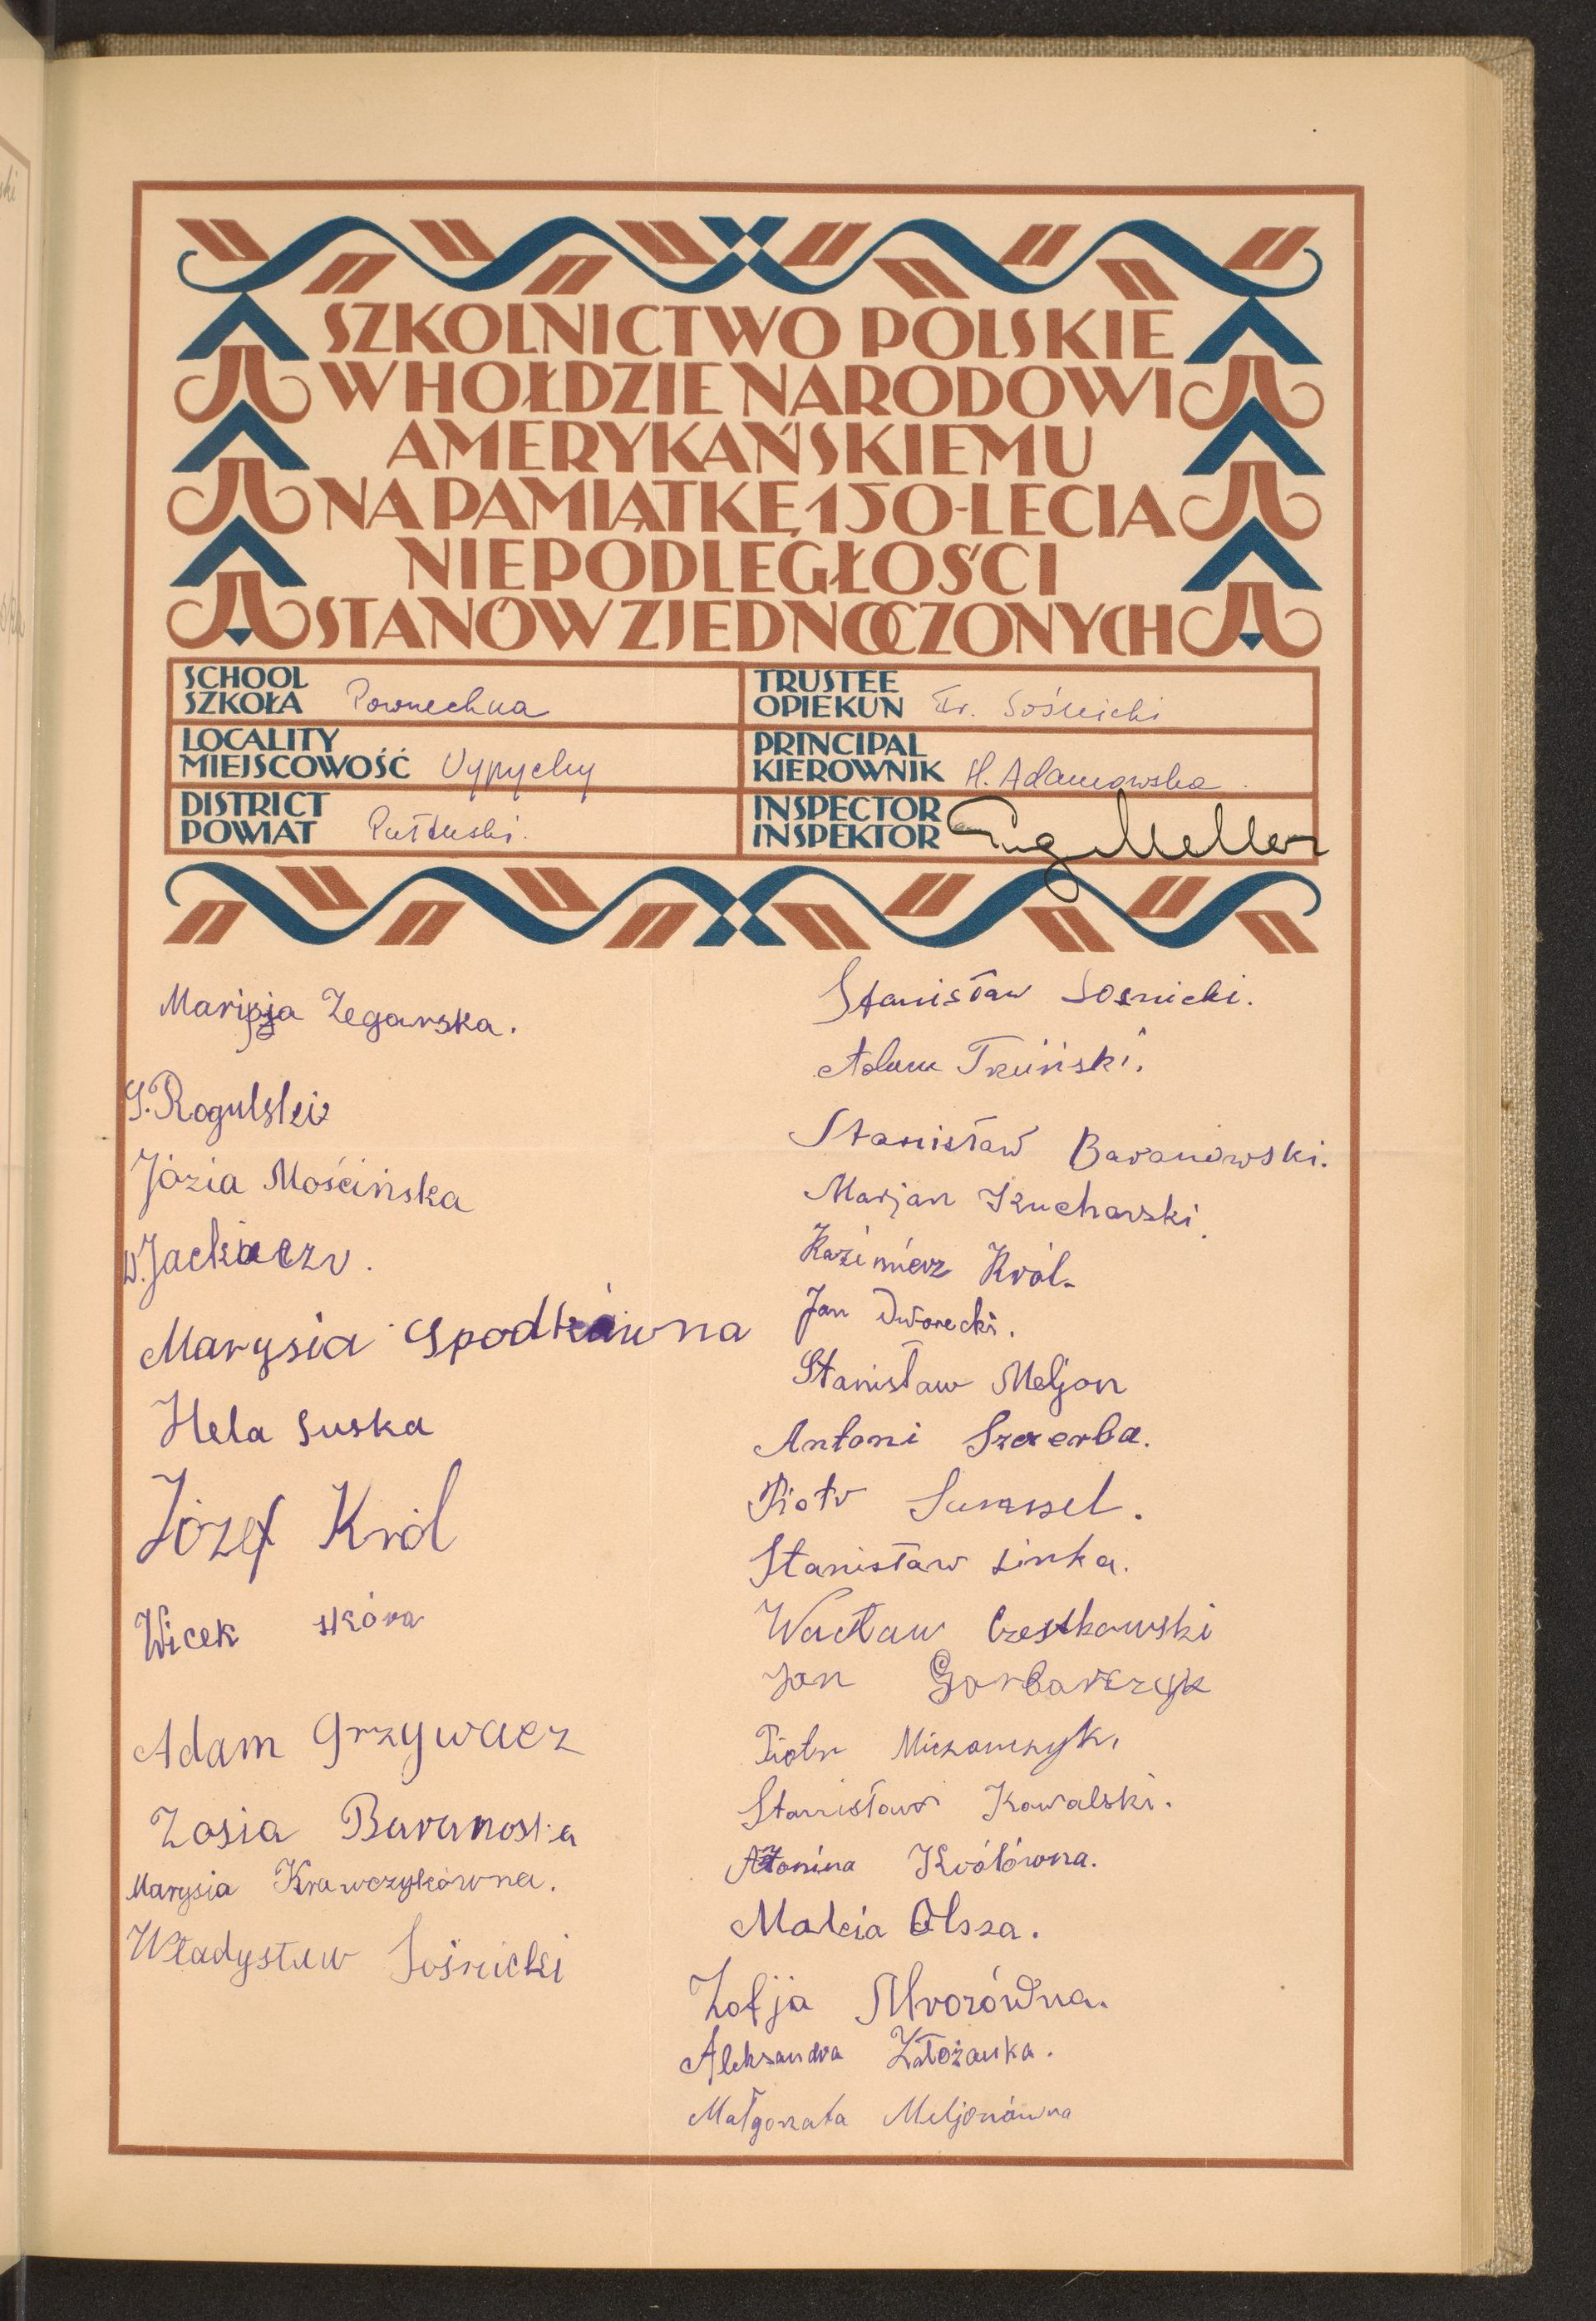 SZKOLNICTWO POLSKIE
W HOŁDZIE NARODOWI
AMERYKAŃSKIEMU
NA PAMIĄTKĘ 150-LECIA
NIEPODLEGŁOŚCI
STANÓW ZJEDNOCZONYCH
SCHOOL
SZKOŁA Powszechna
TRUSTEE
OPIEKUN Fr. Sośnicki
LOCALITY
MIEJSCOWOŚĆ Wypychy
PRINCIPAL
KIEROWNIK H. Adamowska.
DISTRICT
POWIAT Pułtuski.
INSPECTOR
INSPEKTOR Eug Meller
Marija Zegarska.
S. Rogulski
Józia Mościńska
W. Jackacz
Marysia Spodkówna
Hela Suska
Józef Król
Wicek skóra
Adam Grzywacz
Zosia Baranoska
Marysia Krawczykówna.
Władysław Sośnicki
Stanisław Sosnicki.
Adam Trzciński.
Stanisław Baranowski.
Marjan Kucharski.
Kazimierz Król.
Jan Dworecki.
Stanisław Meljon
Antoni Szczerba.
Piotr
Stanisław Linka.
Wacław Czestkowski
Jan Garbarczyk
Piotr
Stanisław Kowalski.
Królówna.
Malcia Olsza.
Zofja Mrozówna.
Aleksandra Złotożanka.
Małgorzata Meljonówna